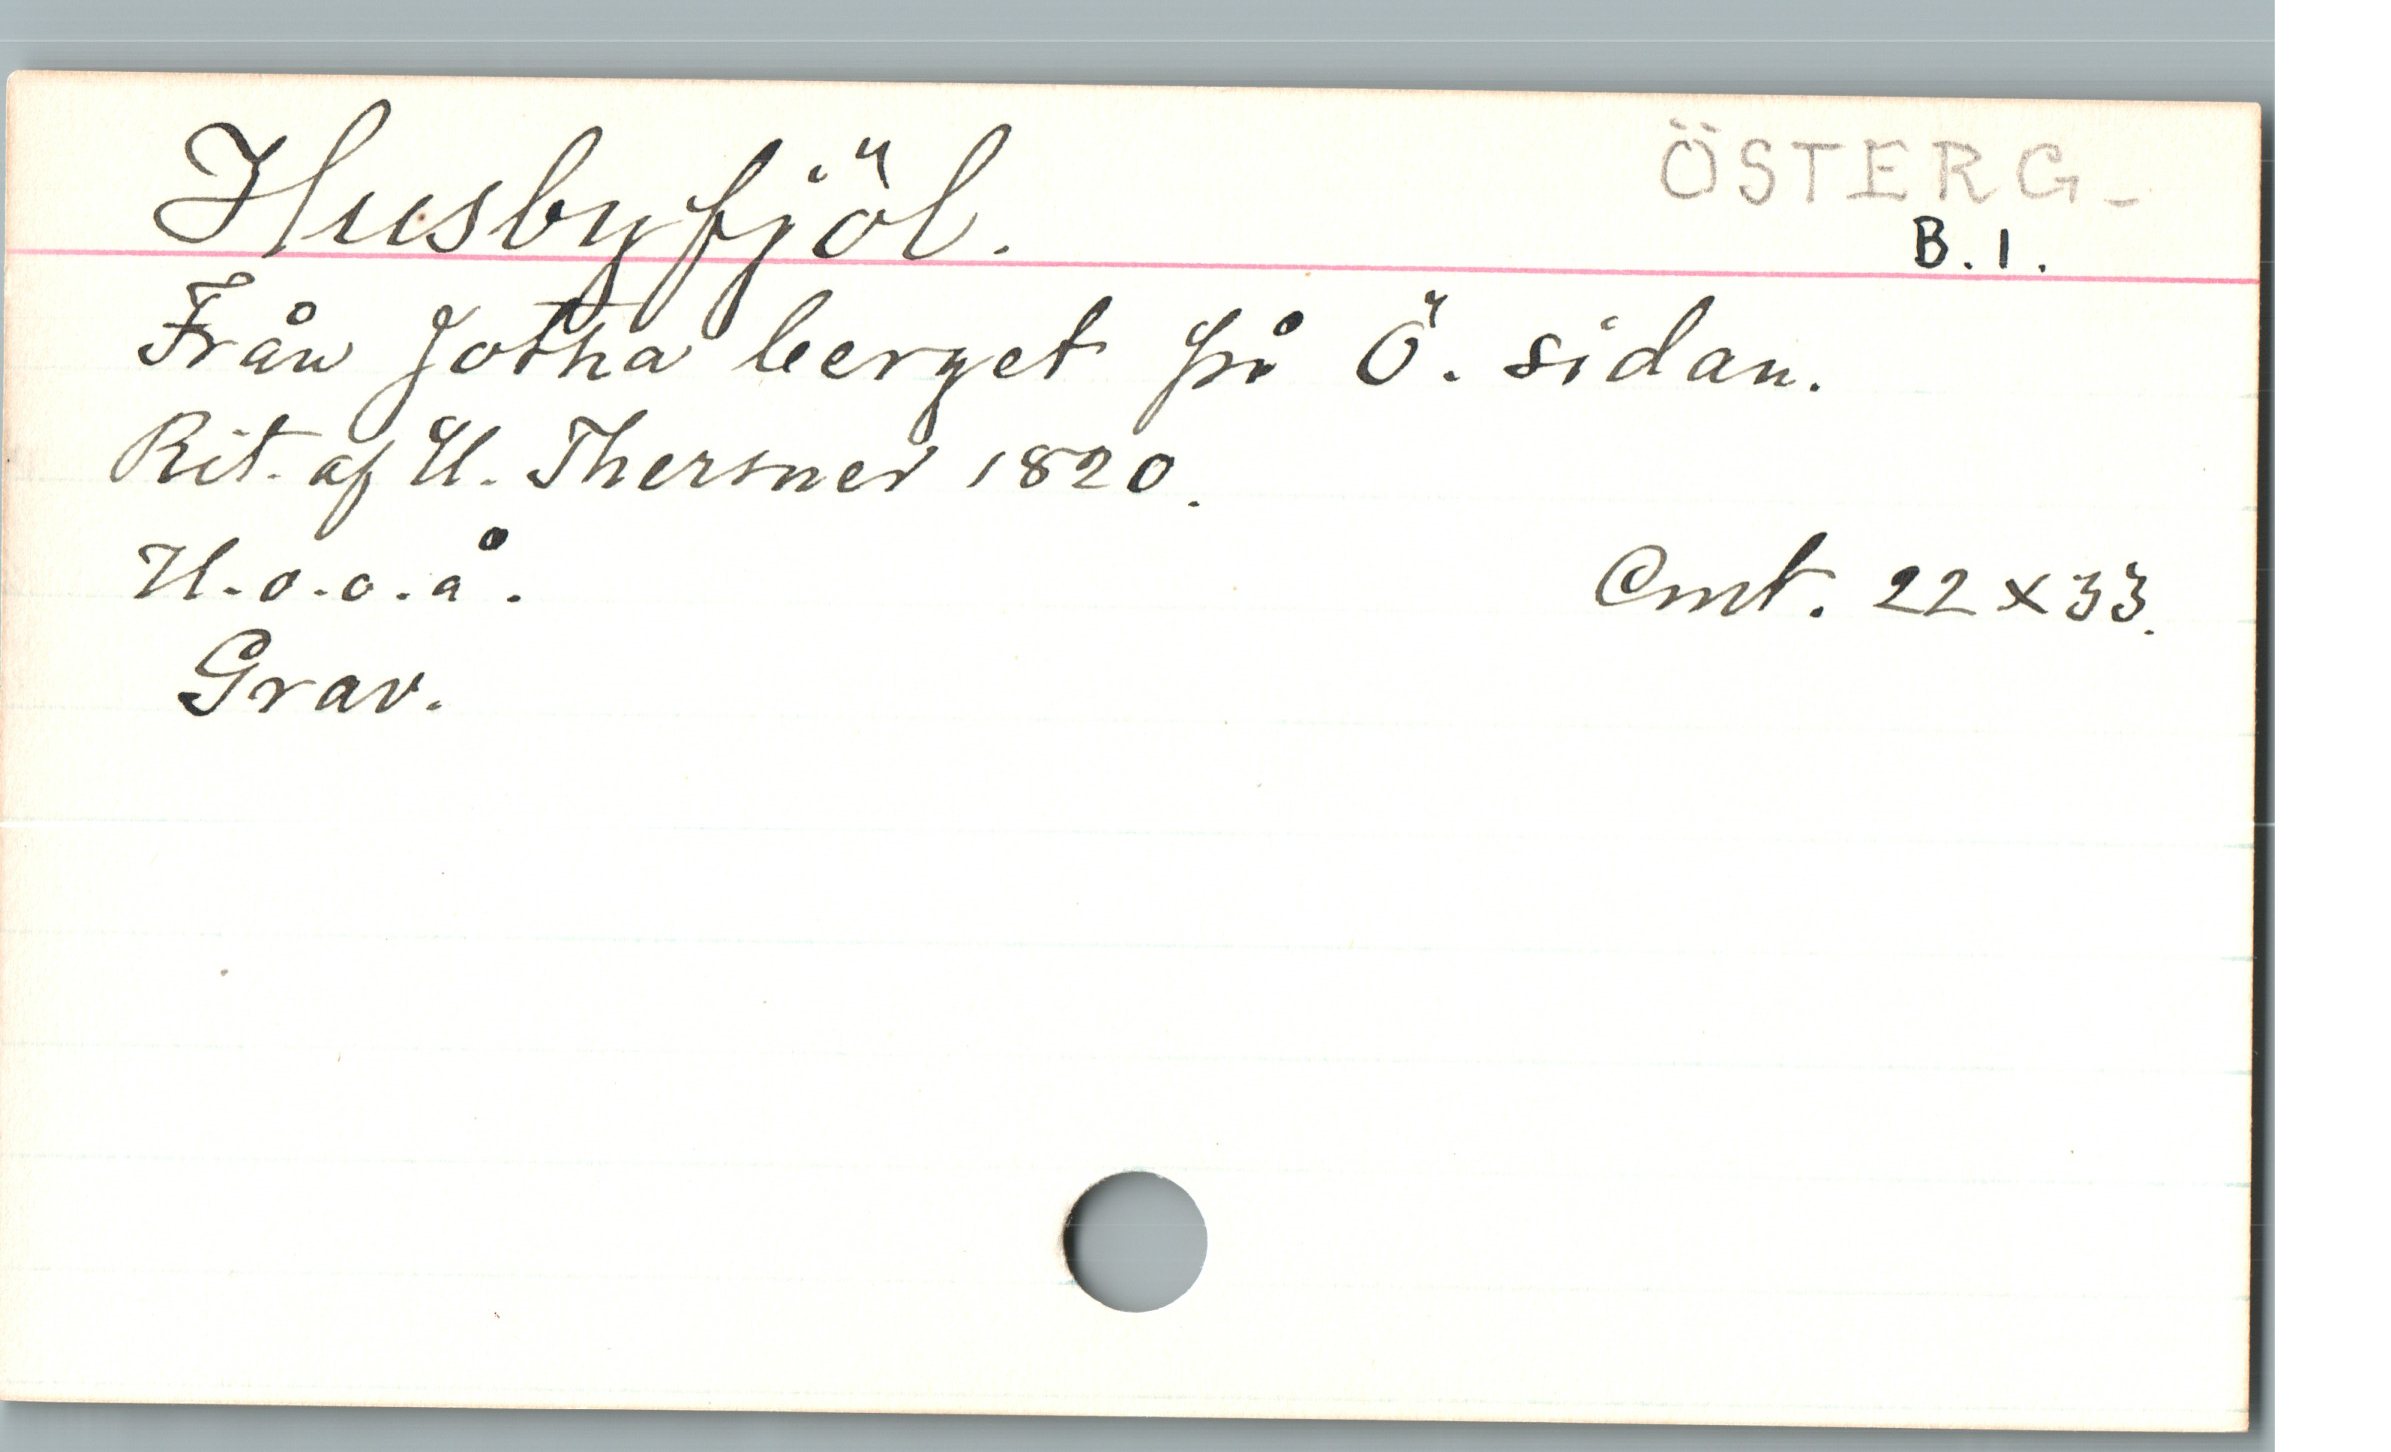 Husbyfjöl.
ÖSTERG-
B.1.
Från Jotha berget på Ö. sidan.
Rit. af U. Thersner 1820.
U.o.o.å.
Cmt. 22 x 33.
Grav.